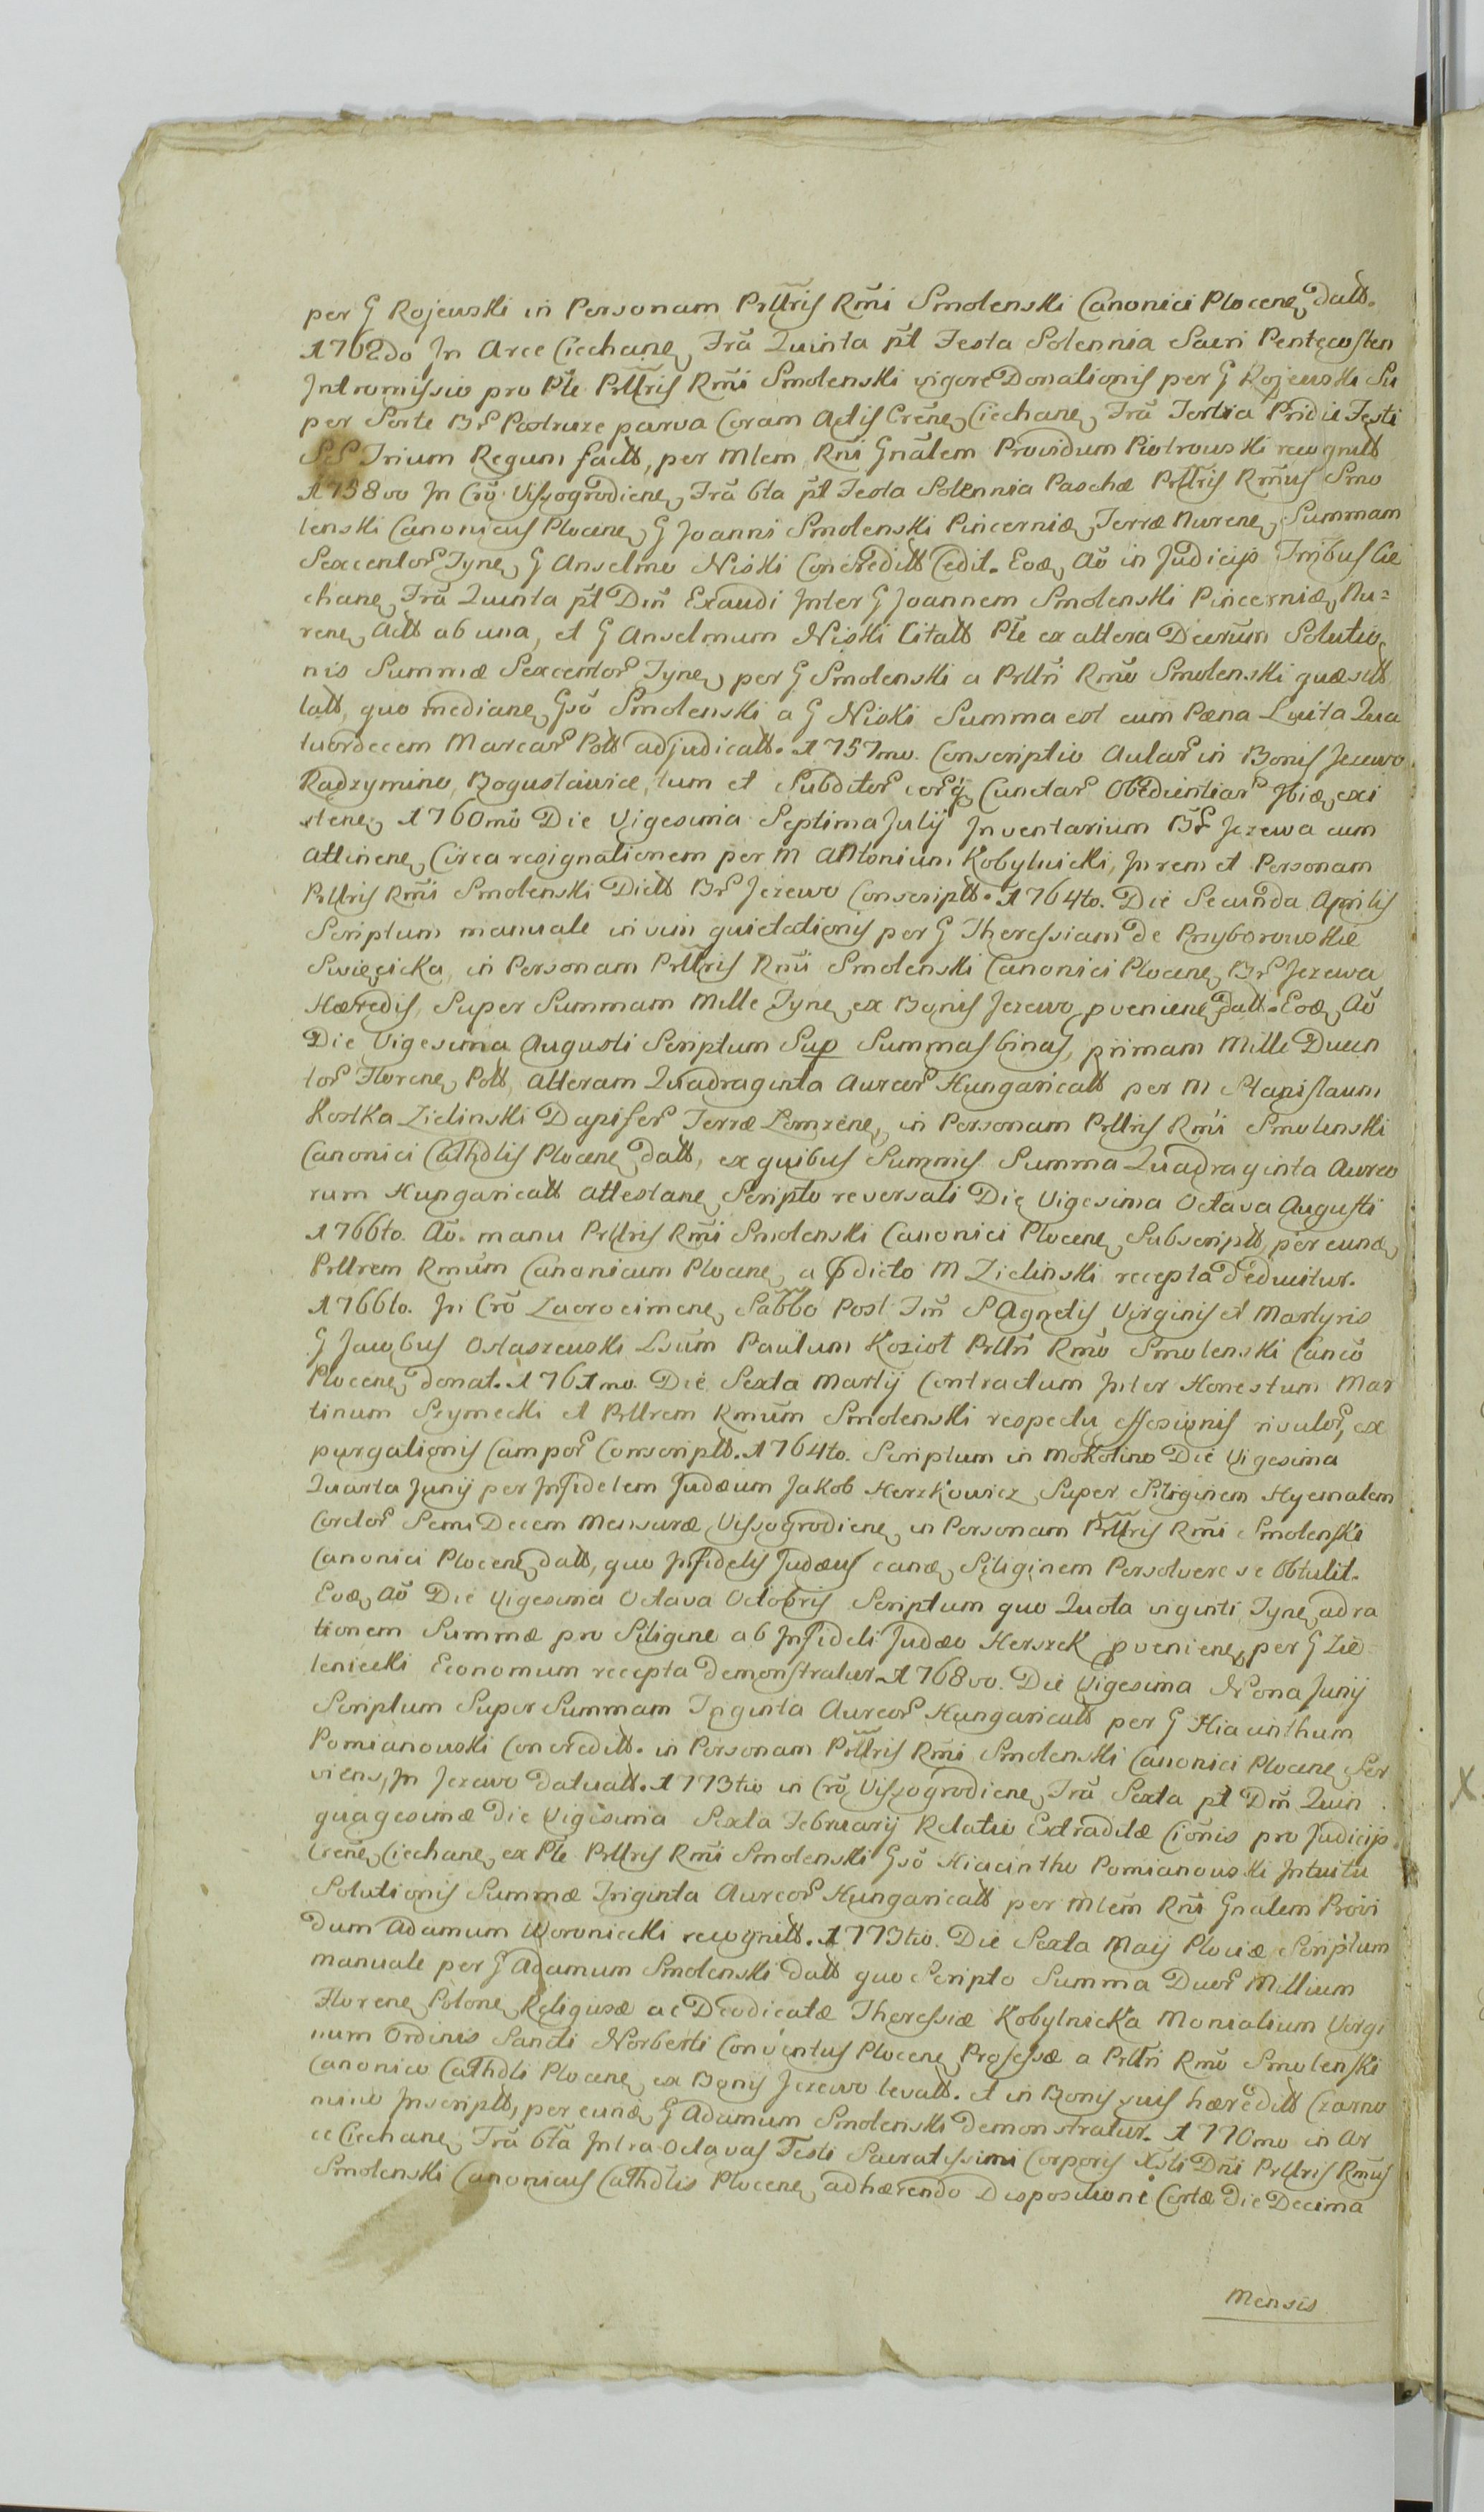 per G Rojewski in Personam Prllris Rm̃i Smolenski Canonici Plocene, datt.
1762do In Arce Ciechane, Fr̃a Quinta pt̃ Festa Solennia Sacri Pentecosten
Intromissio pro Pt̃e Prllris Rm̃i Smolenski vigore Donationis per G Rojewski Su
per Sorte Br̃ Postruze parva Coram Actis Cren̄e, Ciechane, Fr̃a Tertia Pridie Festi
SS Trium Regum factt, per Mlem Rñi Gñalem Providum Piotrowski recognitt
1758vo In Cr̃o Vissogrodiene, Fr̃a 6ta pt̃ Festa Solennia Paschæ Prllris Rm̃us Smo
lenski Canonicus Plocene, G Joanni Smolenski Pincerniæ, Terræ Nurene, Summam
Sexcentor Tyne, G Anselmo Niski Concreditt Cedit. Eoæ, Aõ in Judicijs Tribus Cie
chane, Fr̃a Quinta pt̃ Dm̃ Exaudi Inter G Joannem Smolenski Pincerniæ, Nu=
rene, Actt ab una, et G Anselmum Niski Citatt Pt̃e ex altera Decrũm Solutio
nis Summæ Sexcentor Tyne, per G Smolenski a Prllri Rm̃o Smolenski quæsitt
latt, quo mediane, Gsõ Smolenski a G Niski Summa est cum Pæna Lucita Qua
tuordecem Marcar Poll adjudicatt. 1757mo. Conscriptio Aular in Bonis Jezewo
Radzymino, Bogusławice, tum et Subditor eorq̃ Cunctar Obedientiar Ibiæ, exi
stene, 1760mo Die Vigesima Septima Julij Inventarium Br̃ Jezewa cum
attinene, Circa resignationem per M Antonium Kobylnicki, In rem et Personam
Prllris Rm̃i Smolenski Dictt Br̃ Jezewo Conscriptt. 1764to. Die Secunda Aprilis
Scriptum manuale in vim quietationis per G Theressiam de Przyborowskie
Swięcicka, in Personam Prllris Rm̃i Smolenski Canonici Plocene, Br̃ Jezewa
Hæredis, Super Summam Mille Tyne, ex Bonis Jezewo pveniene, datt. Eoæ, Aõ
Die Vigesima Augusti Scriptum Sup Summas binas, primam Mille Ducen
tor Florene, Poll, alteram Quadraginta Aureor Hungaricatt per M Stanislaum
Kostka Zielinski Dapifer Terræ Lomzene, in Personam Prllris Rm̃i Smolenski
Canonici Cathdlis Plocene, datt, ex quibus Summis Summa Quadraginta Aureo
rum Hungaricatt attestane, Scripto reversali Die Vigesima Octava Augusti
1766to. Aõ. manu Prllris Rm̃i Smolenski Canonici Plocene, Subscriptt, per eunæ,
Prllrem Rm̃um Canonicum Plocene, a pdicto M Zielinski recepta deducitur.
1766to. In Cr̃o Zacrocimene, Sabbo Post Fm̃ S Agnetis Virginis et Martyris
G Jacobus Ostaszewski Lsũm Paulum Kozioł Prllri Rm̃o Smolenski Cancõ
Plocene, donat. 1761mo. Die Sexta Martij Contractum Inter Honestum Mar
tinum Szymecki et Prllrem Rmũm Smolenski respectu effosionis rivulor, ex
purgationis Campor Conscriptt. 1764to. Scriptum in Mokotino Die Vigesima
Quarta Junij per Infidelem Judæum Jakob Herzkowicz Super Siliginem Hyemalem
Coretor Semi Decem Mensuræ Vissogrodiene, in Personam Prllris Rm̃i Smolenski
Canonici Plocene, datt, quo Infidelis Judæus eanæ, Siliginem Persolvere se Obtulit.
Eoæ, Aõ Die Vigesima Octava Octobris Scriptum quo Quota viginti Tyne, ad ra
tionem Summæ pro Siligine ab Infideli Judæo Herszek pveniene, per G Zie
leniecki Economum recepta demonstratur. 1768vo. Die Vigesima Nona Junij
Scriptum Super Summam Triginta Aureor Hungaricatt per G Hiacinthum
Pomianowski Concreditt. in Personam Prllris Rm̃i Smolenski Canonici Plocene, Ser
viens, In Jezewo datuatt. 1773tio in Cr̃o Vissogrodiene, Fr̃a Sexta pt̃ Dm̃ Quin
quagesimæ Die Vigesima Sexta February Relatio Extraditæ Ciõnis pro Judicijs
Cren̄e, Ciechane, ex Pt̃e Prllris Rm̃i Smolenski Gsõ Hiacintho Pomianowski Intuitu
Solutionis Summæ Triginta Aureor Hungaricatt per Mlem̃ Rñi Gnalem Provi
dum Adamum Woroniecki recognitt. 1773tio. Die Sexta Maij Plociæ Scriptum
manuale per G Adamum Smolenski datt quo Scripto Summa Duor Millium
Florene, Polone, Religiosæ ac Deodicatæ Theressiæ Kobylnicka Monialium Virgi
num Ordinis Sancti Norberti Conventus Plocene, Professæ a Prllri Rm̃o Smolenski
Canonico Cathdli Plocene, ex Bonis Jezewo levatt. et in Bonis suis hæreditt Czarno
nino Inscriptt, per eunæ, G Adamum Smolenski demonstratur. 1770mo in Ar
ce Ciechane, Fr̃a 6ta Intra Octavas Festi Sacratissimi Corporis Xsti Dñi Prllris Rm̃us
Smolenski Canonicus Cathdlis Plocene, adhærendo Dispositioni Certæ die Decima
Mensis
X